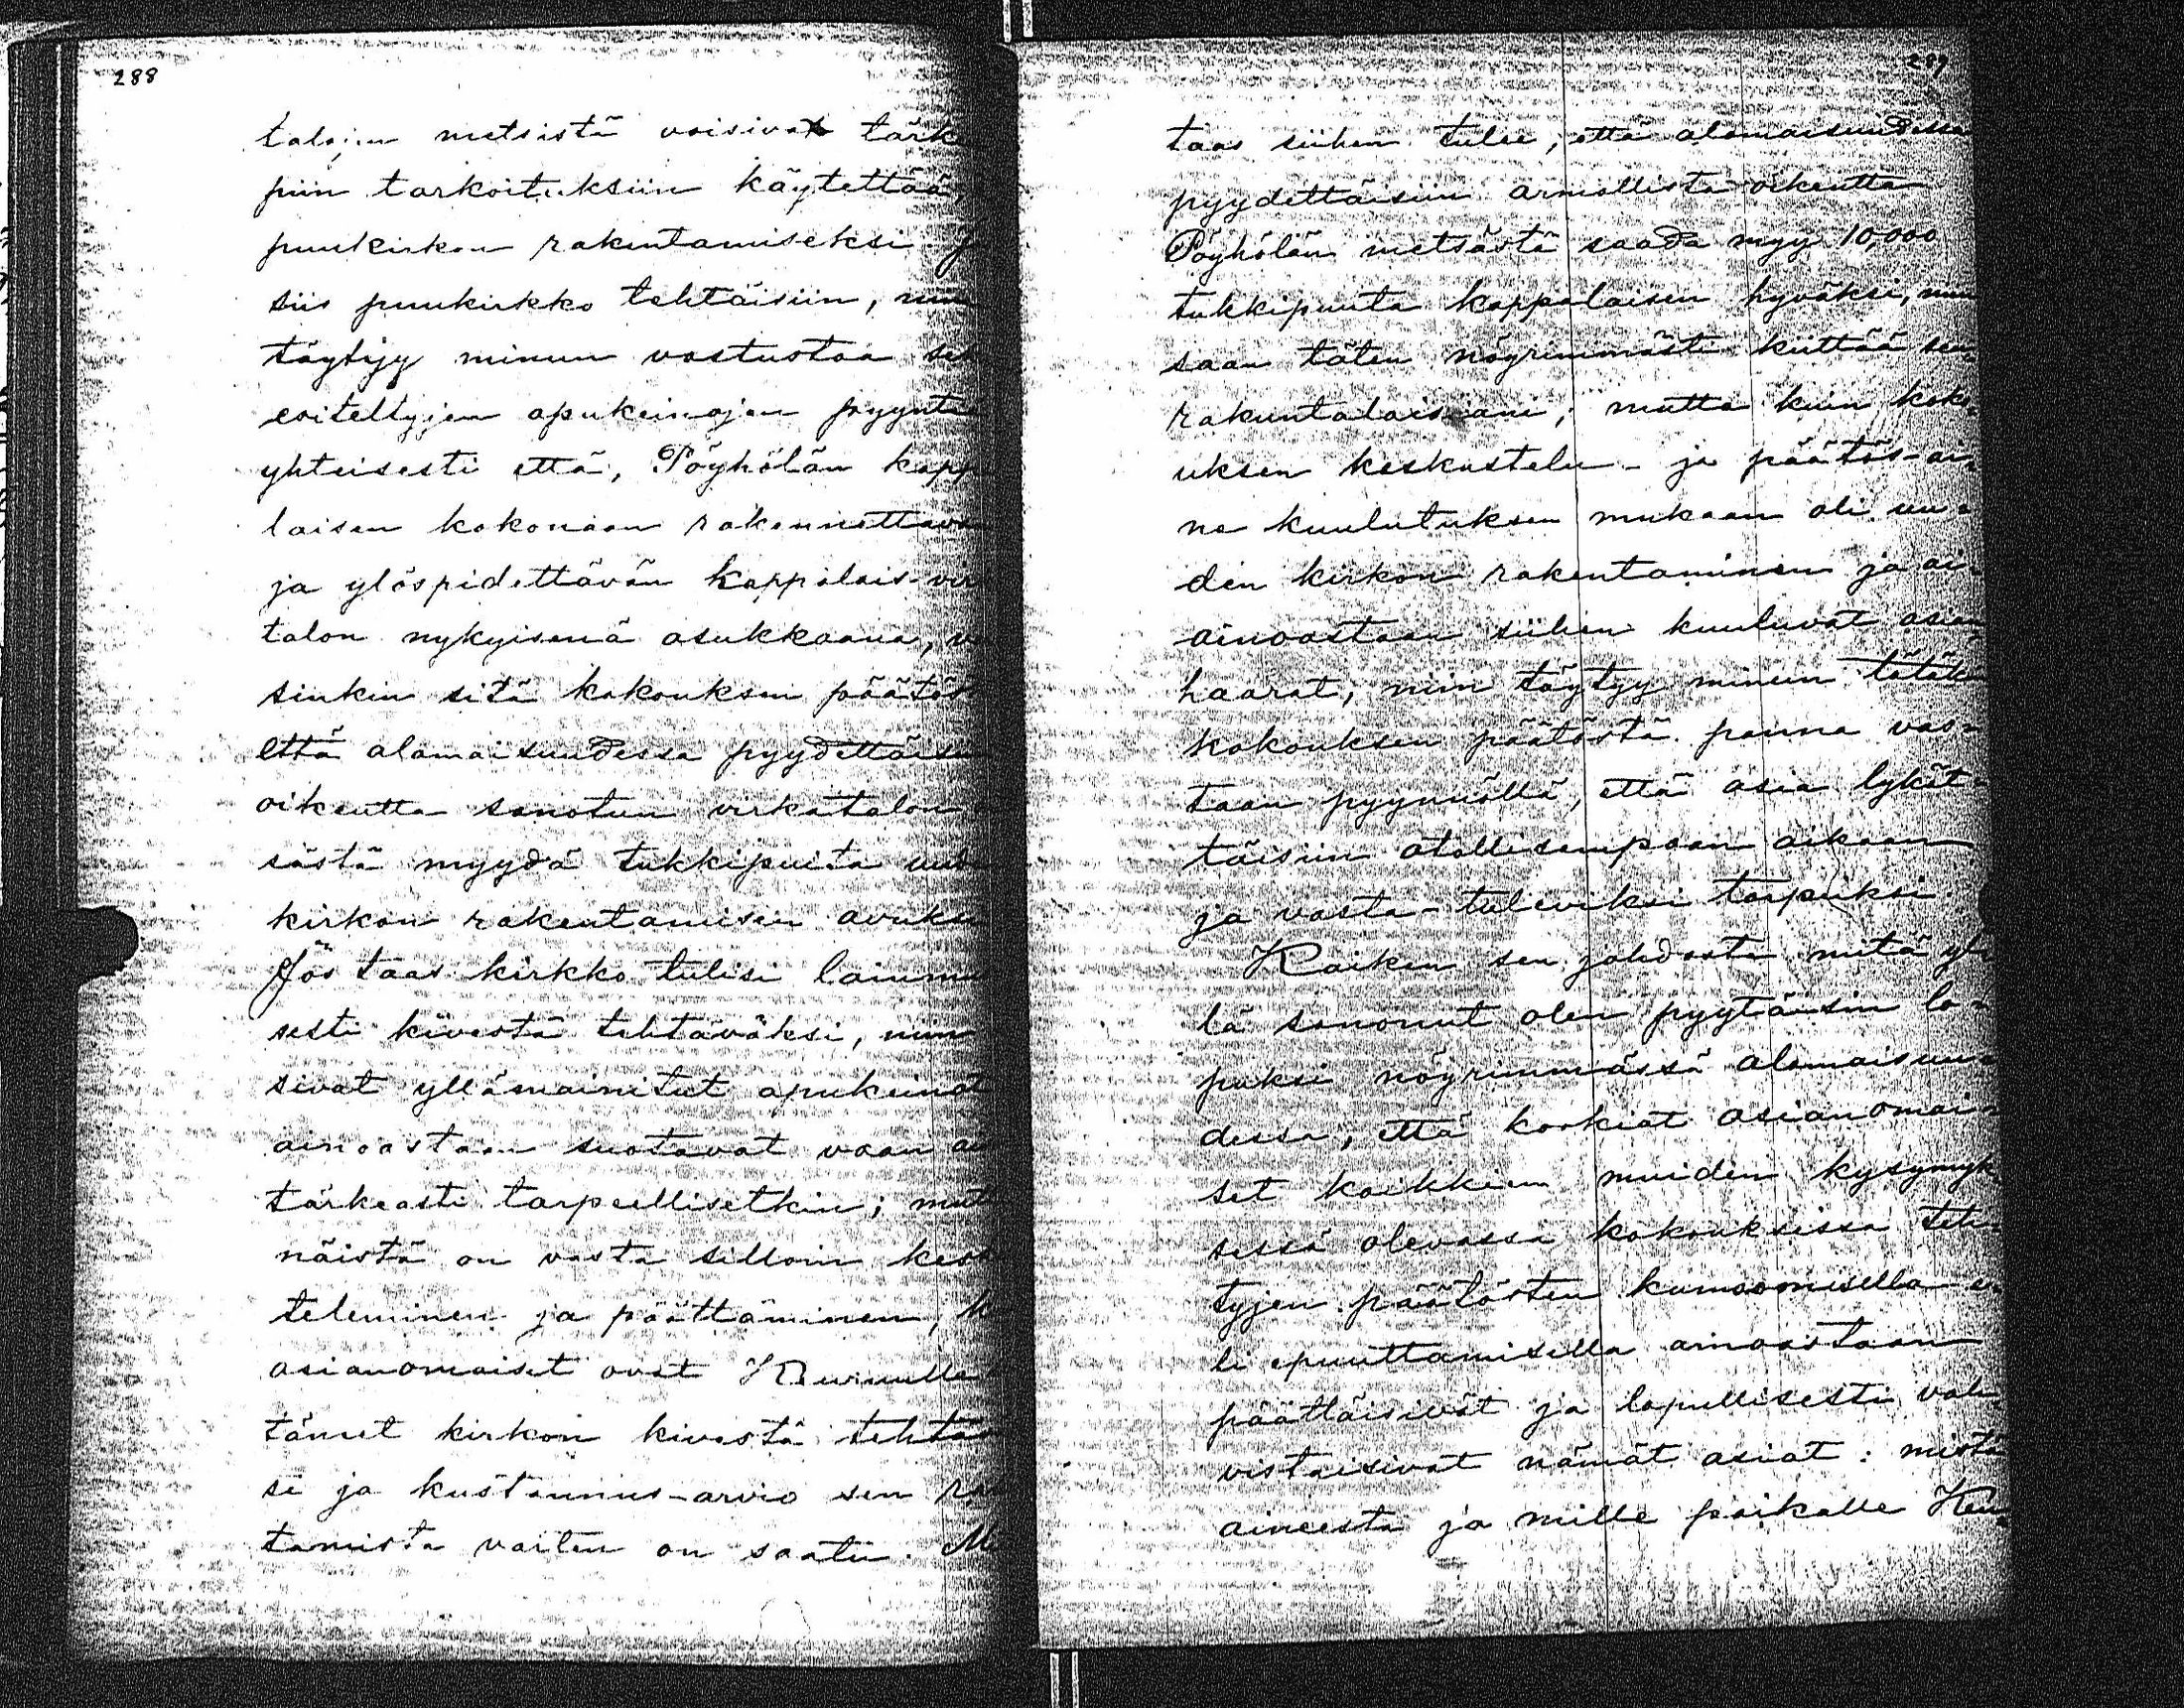 288
talojen metsistä voisivat tärk
piin tarkoituksiin käytettää,
puukirkon rakentamiseksi j
siis puukirkko tehtäisiin, niin
täytyy minun vastustaa se
esiteltyjen apukeinojen pyyntö
yhteisesti että, Pöyhölän kapp
laisen kokonaan rakennettava
ja ylöspidettävän kappalais-vir
talon nykyisenä asukkaana, v
sinkin sitä kokouksen päätös
että alamaisuudessa pyydettäisi
oikeutta sanotun virkatalon
sästä myydä tukkipuita uud
kirkon rakentamisen avuksi
Jos taas kirkko tulisi lainmu
sesti kivestä tehtäväksi, niin
sivat yllämainitut apukeinot
ainoastaan suotavat vaan ai
tärkeästi tarpeellisetkin; mut
näistä on vasta silloin kesk
teleminen ja päättäminen, k
asianomaiset ovat Keuruulle
täneet kirkon kivestä tehtäv
si ja kustannus-arvio sen ra
tamista varten on saatu. Mi
289
taas siihen tulee, että alamaisuudessa
pyydettäisiin armollista oikeutta
Pöyhölän metsästä saada myy 10,000
tukkipuuta kappalaisen hyväksi, niin
saan täten nöyrimmästi kiittää seu-
rakuntalaisiani; mutta kuin koko-
uksen keskustelu- ja päätös-ai-
ne kuulutuksen mukaan oli uu-
den kirkon rakentaminen ja ai-
ainoastaan siihen kuuluvat asian
haarat; niin täytyy minun tätäki
kokouksen päätöstä panna vas-
taan pyynnöllä, että asia lykät-
täisiin otollisempaan aikaan
ja vasta-tuleviksi tarpeiksi.
Kaiken sen johdosta mitä yl
lä sanonut olen pyytäisin lo-
puksi nöyrimmässä alamaisuu-
dessa, että korkiat asianomai-
set kaikkien muiden kysymyk
sessä olevassa kokouksissa teh
tyjen päätösten kumoomisella e
li epuuttamisella ainoastaan
päättäisivät ja lopullisesti vah
vistaisivat nämät asiat: mistä
aineesta ja mille paikalle Keu-